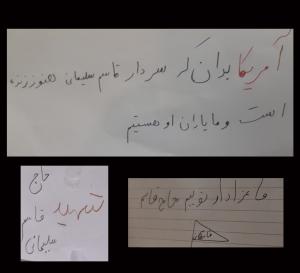 آمریکا بدان که سردار قاسم سلیمانی هنوز زنده
است و ما یاران او هستیم
حاج
شهید قاسم
سلیمانی
ما عزادار توییم حاج قاسم